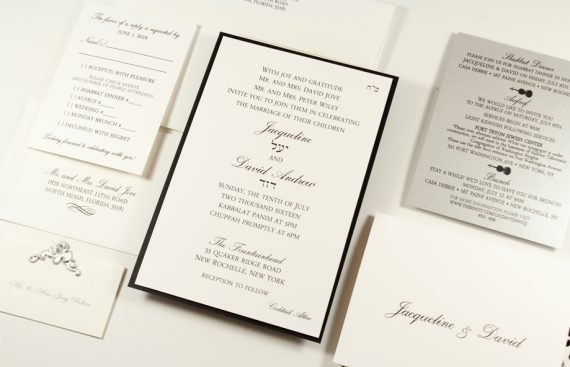 NORTH MIAMI, FLORIDA 33181
The favor of a reply is requested by
JUNE 1, 2016
Name/s
[ ] ACCEPT/S WITH PLEASURE
PLEASE CHECK EVENTS
AND NUMBER OF PEOPLE ATTENDING
[ ] SHABBAT DINNER
[ ] AUFRUF
[ ] WEDDING
[ ] MONDAY BRUNCH
[ ] DECLINE/S WITH REGRET
Looking forward to celebrating with you!
Mr. and Mrs. David Jove
NORTH MIAMI, FLORIDA 33181
Mr. & Mrs.
WITH JOY AND GRATITUDE
MR. AND MRS. DAVID JOVE
MR. AND MRS. PETER WILEY
INVITE YOU TO JOIN THEM IN CELEBRATING
THE MARRIAGE OF THEIR CHILDREN
Jacqueline
יעל
AND
David Andrew
דוד
SUNDAY, THE TENTH OF JULY
TWO THOUSAND SIXTEEN
KABBALAT PANIM AT 5PM
CHUPPAH PROMPTLY AT 6PM
The Fountainhead
55 QUAKER RIDGE ROAD
NEW ROCHELLE, NEW YORK
RECEPTION TO FOLLOW
Cocktail Attire
Shabbat Dinner
PLEASE JOIN US FOR SHABBAT DINNER IN HONOR
JACQUELINE & DAVID ON FRIDAY, JULY 8TH
Aufruf
WE WOULD LIKE TO INVITE YOU
TO THE AUFRUF ON SATURDAY, JULY 9TH
SERVICES BEGIN AT 9AM
LIGHT KIDDUSH FOLLOWING SERVICES
PORT WASHINGTON, NEW YORK
Brunch
STAY A WHILE! WE'D LOVE TO HAVE YOU FOR BRUNCH
MONDAY, JULY 11 AT 9AM
FOR MORE INFORMATION PLEASE VISIT
Jacqueline & David